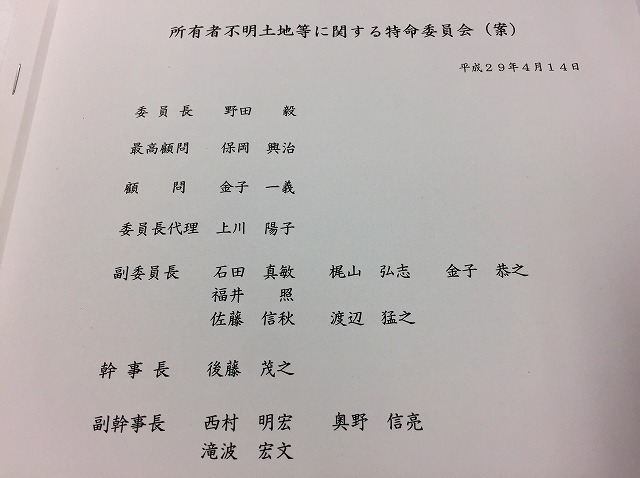 所有者不明土地等に関する特命委員会（案）
平成２９年４月１４日
委 員 長　野田　毅
最高顧問　保岡　興治
顧　問　金子　一義
委員長代理　上川　陽子
副委員長　石田　真敏　梶山　弘志　金子　恭之
福井　照
佐藤　信秋　渡辺　猛之
幹 事 長　後藤　茂之
副幹事長　西村　明宏　奥野　信亮
滝波　宏文